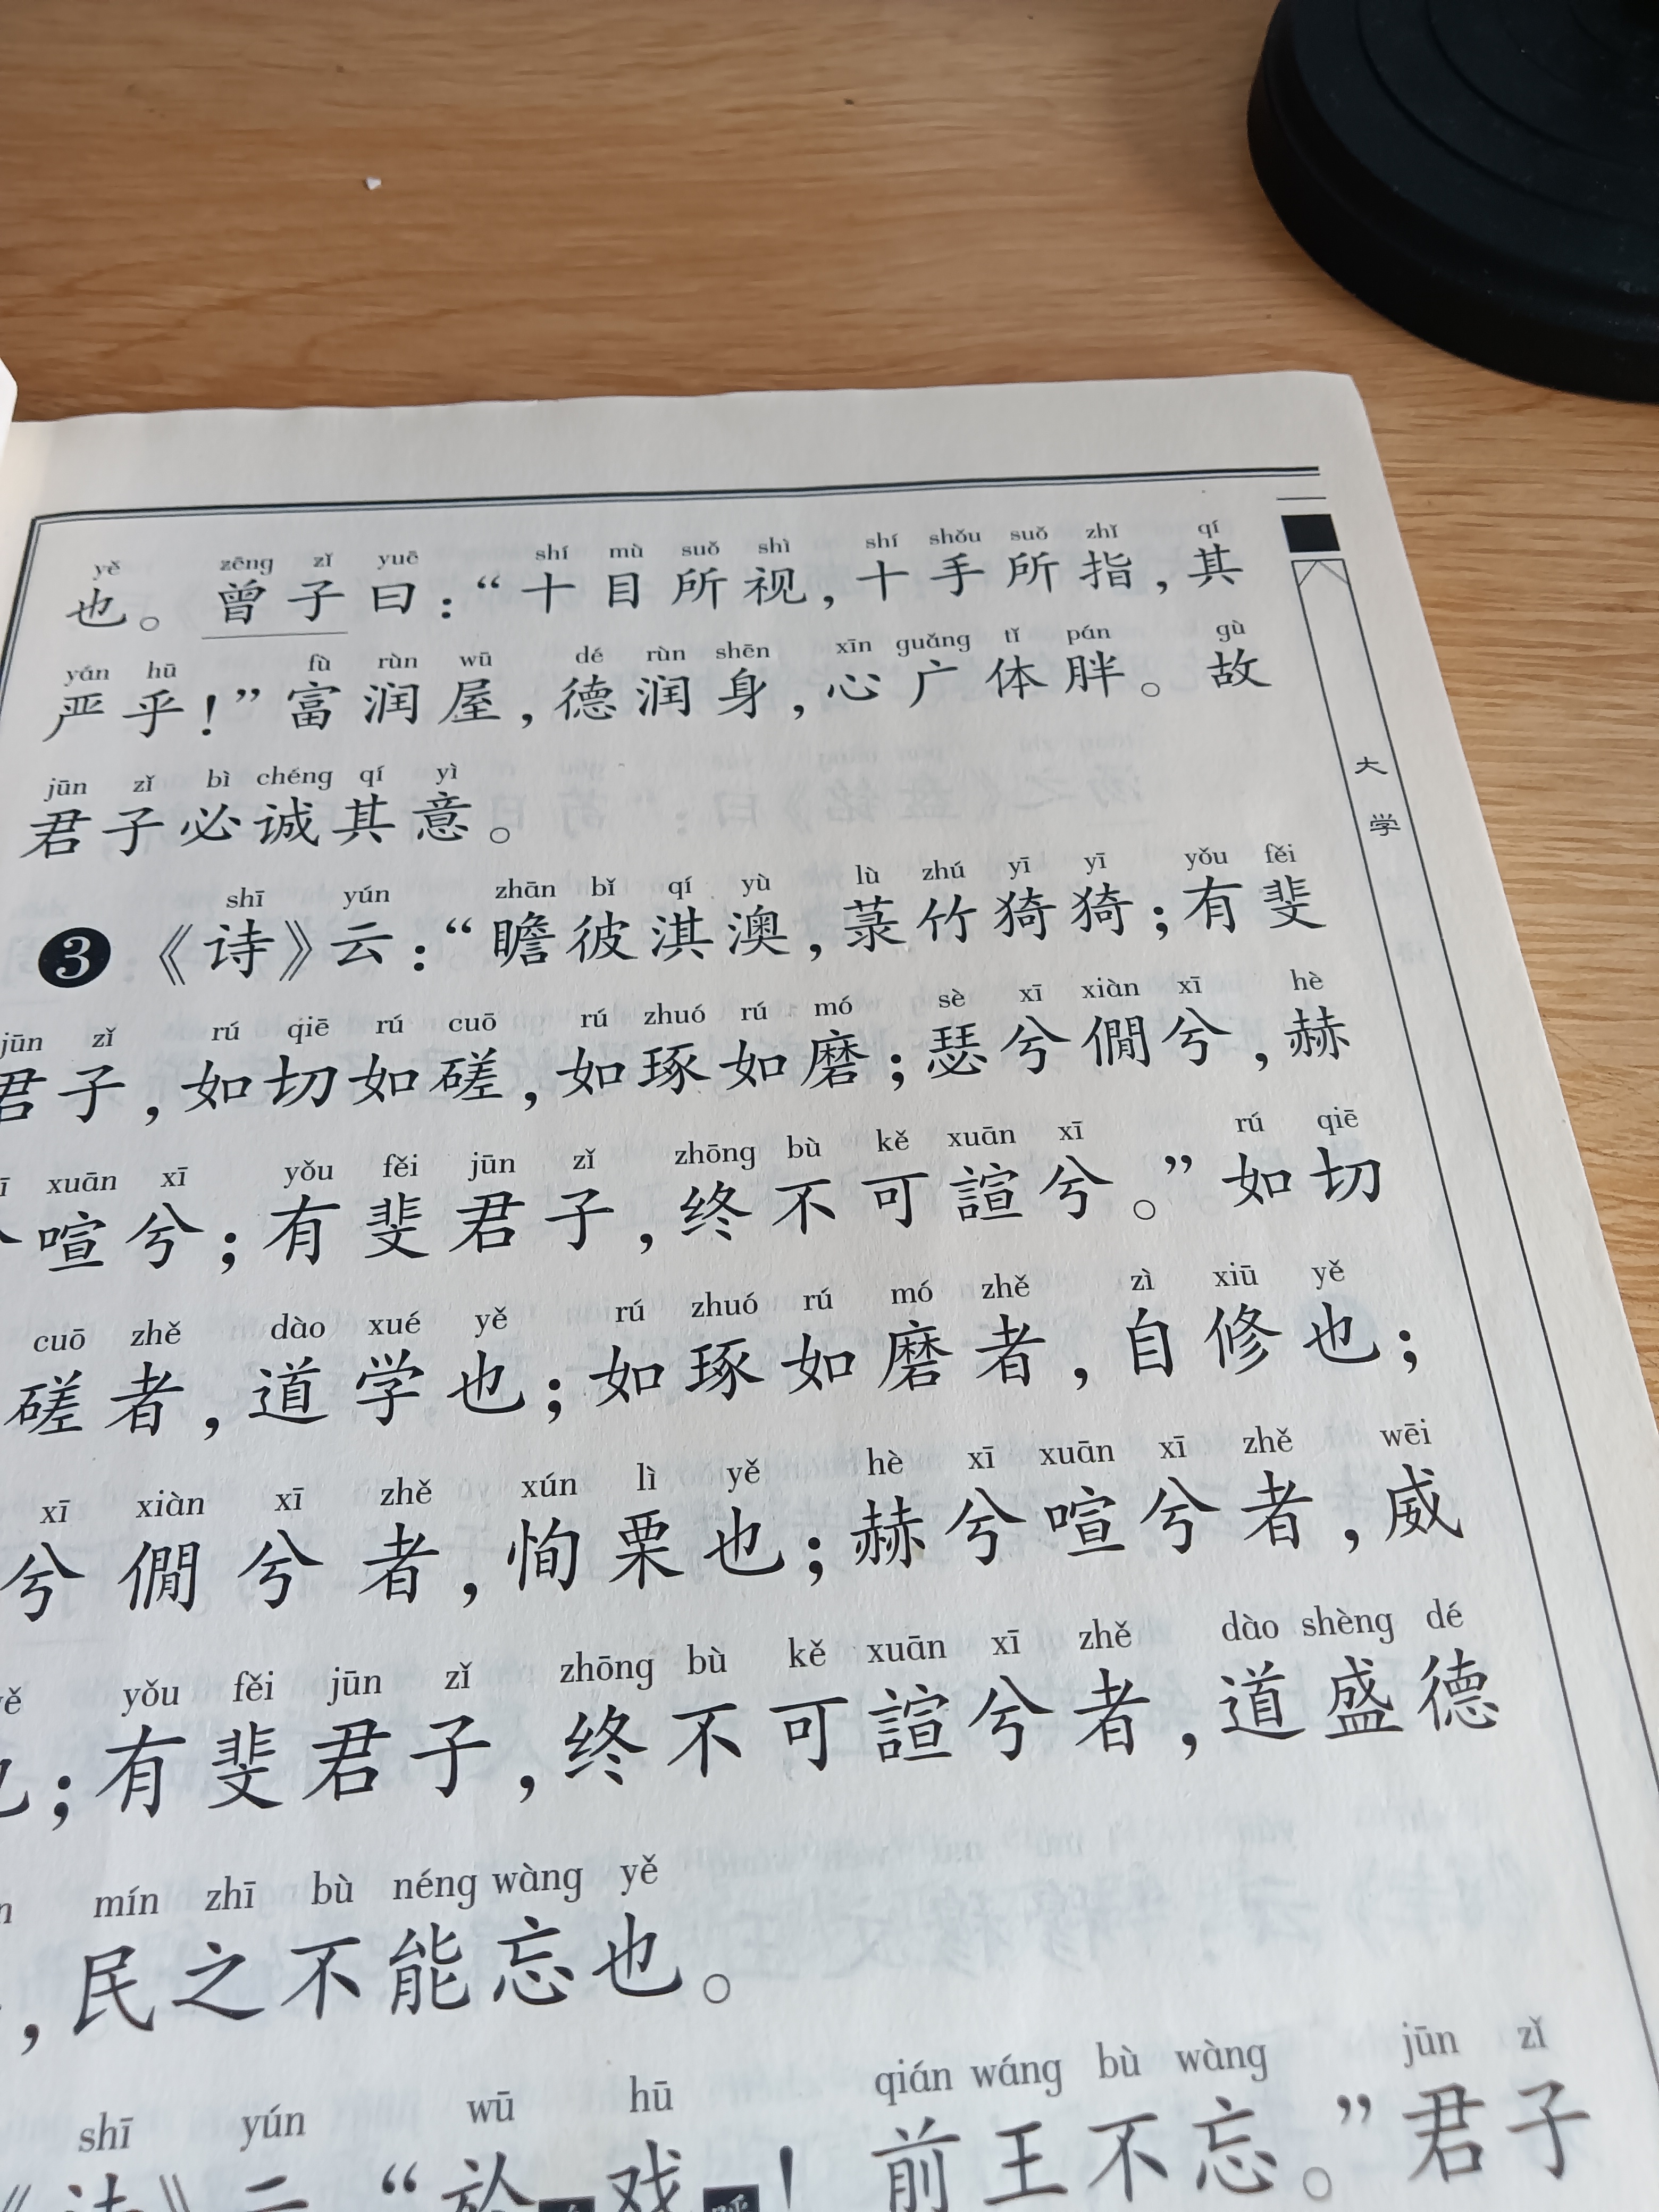 yě zēng zǐ yuē shí mù suǒ shì shí shǒu suǒ zhǐ qí
也。曾子曰：“十目所视，十手所指，其
yán hū fù rùn wū dé rùn shēn xīn guǎng tǐ pán gù
严乎！”富润屋，德润身，心广体胖。故
jūn zǐ bì chéng qí yì
君子必诚其意。
shī yún zhān bǐ qí yù lù zhú yī yī yǒu fěi
3《诗》云：“瞻彼淇澳，菉竹猗猗；有斐
jūn zǐ rú qiē rú cuō rú zhuó rú mó sè xī xiàn xī hè
君子，如切如磋，如琢如磨；瑟兮僩兮，赫
xuān xī yǒu fěi jūn zǐ zhōng bù kě xuān xī rú qiē
喧兮；有斐君子，终不可諠兮。”如切
cuō zhě dào xué yě rú zhuó rú mó zhě zì xiū yě
磋者，道学也；如琢如磨者，自修也；
xī xiàn xī zhě xún lì yě hè xī xuān xī zhě wēi
兮僩兮者，恂栗也；赫兮喧兮者，威
yǒu fěi jūn zǐ zhōng bù kě xuān xī zhě dào shèng dé
；有斐君子，终不可諠兮者，道盛德
mín zhī bù néng wàng yě
，民之不能忘也。
shī yún wū hū qián wáng bù wàng jūn zǐ
《诗》云“於戏！前王不忘。”君子
大学